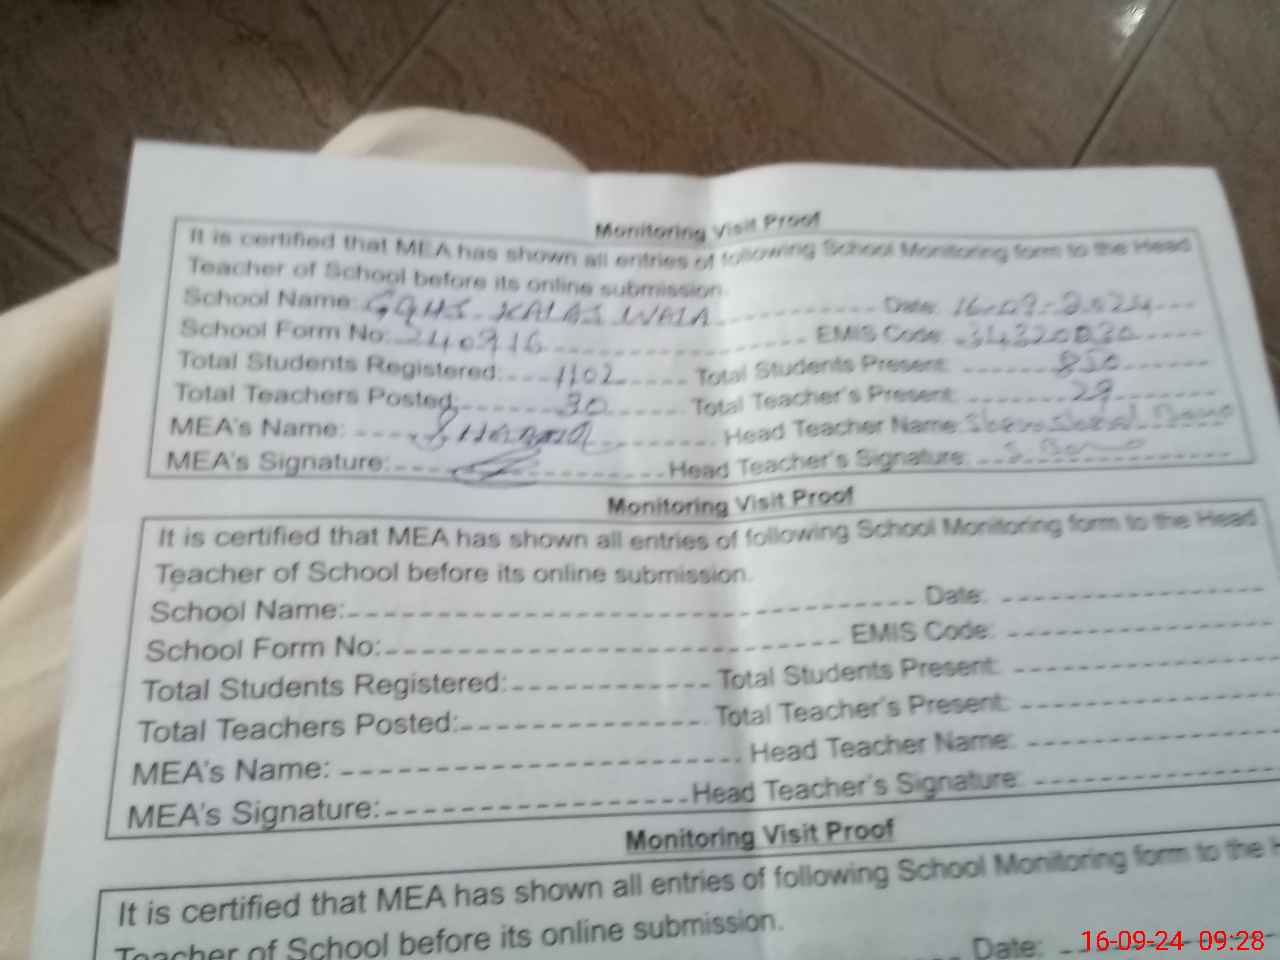 Monitoring Visit Proof
It is certified that MEA has shown all entries of following School Monitoring form to the Head
Teacher of School before its online submission.
School Name: GGHS. KALAS WALA Date: 16-09-2024
School Form No: 240916 EMIS Code: 34320030
Total Students Registered: 1102 Total Students Present: 850
Total Teachers Posted: 30 Total Teacher's Present: 29
MEA's Name: Head Teacher Name:
MEA's Signature: Head Teacher's Signature:
Monitoring Visit Proof
It is certified that MEA has shown all entries of following School Monitoring form to the Head
Teacher of School before its online submission.
School Name: Date:
School Form No: EMIS Code:
Total Students Registered: Total Students Present:
Total Teachers Posted: Total Teacher's Present:
MEA's Name: Head Teacher Name:
MEA's Signature: Head Teacher's Signature:
Monitoring Visit Proof
It is certified that MEA has shown all entries of following School Monitoring form to the H
Teacher of School before its online submission.
Date:
16-09-24 09:28